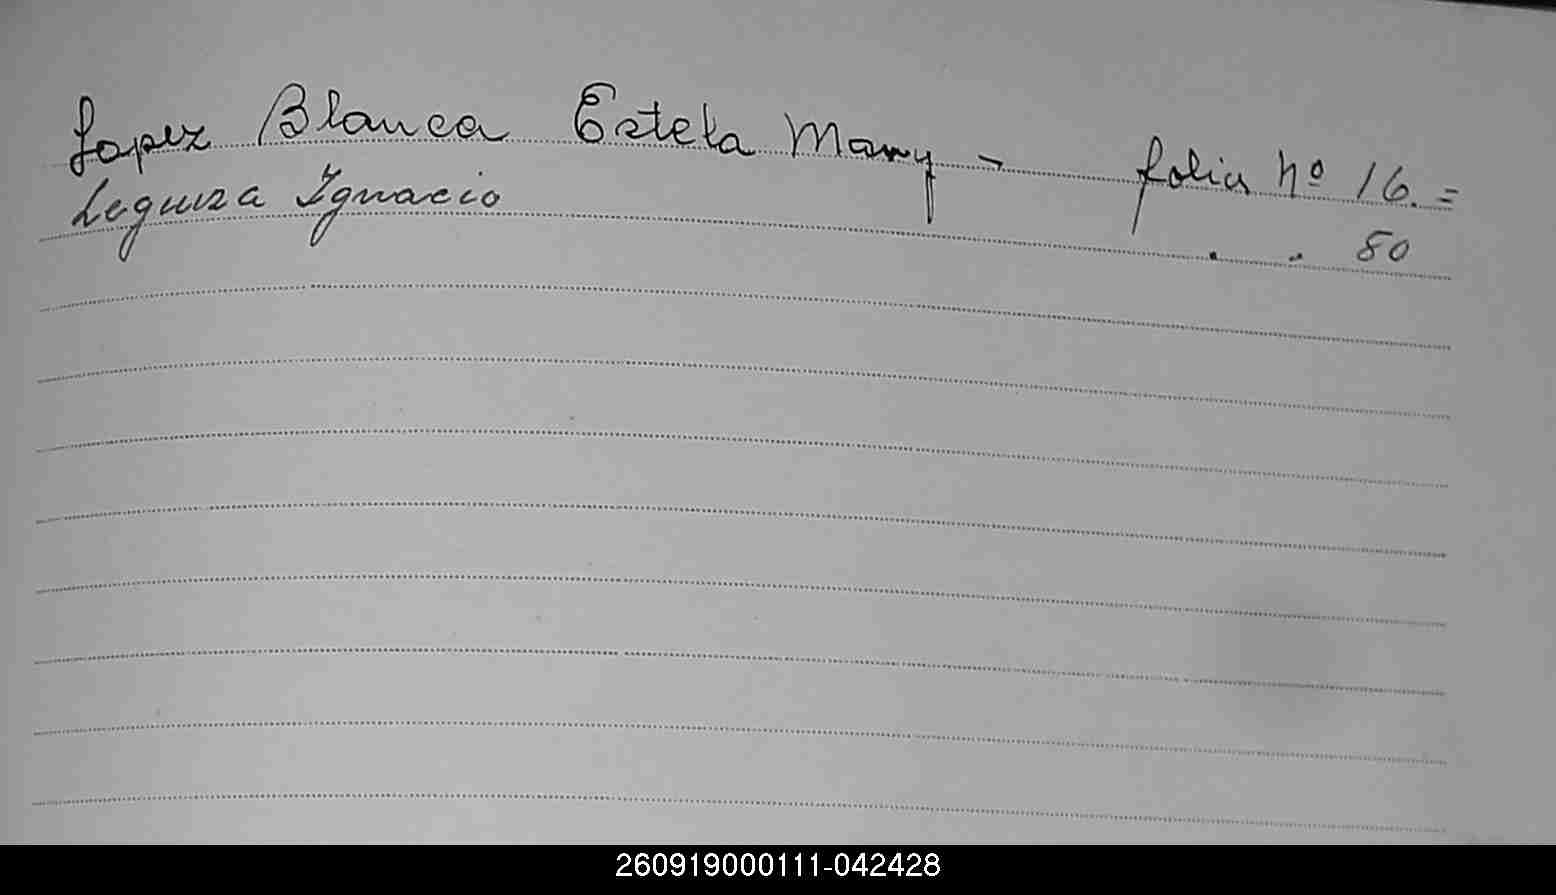 Lopez Blanca Estela Mary - folio nº 16. =
Leguiza Ignacio . . 80
260919000111-042428